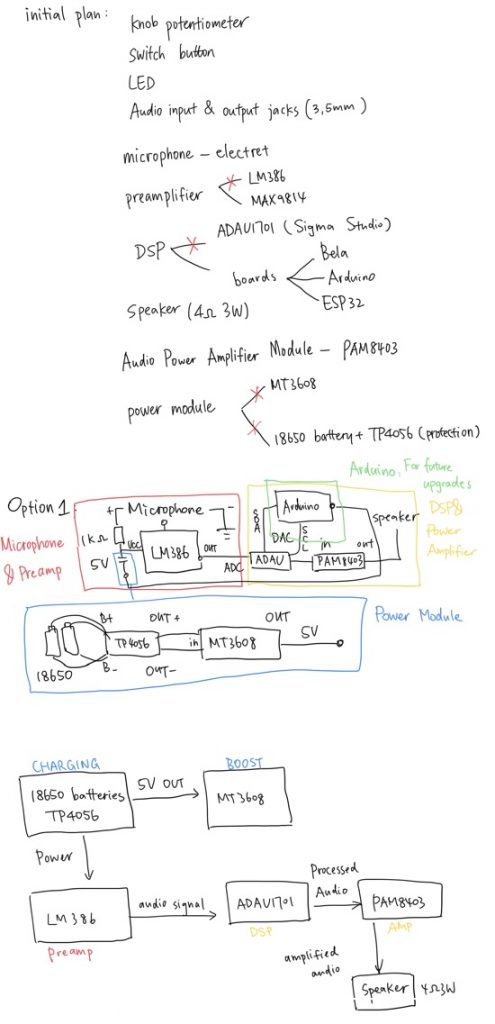 initial plan :
Knob potentiometer
Switch button
LED
Audio input & output jacks (3,5mm)
microphone - electret
preamplifier
LM386
MAX9814
DSP
ADAU1701 (Sigma Studio)
boards
Bela
Arduino
ESP32
Speaker (4Ω 3W)
Audio Power Amplifier Module - PAM8403
power module
MT3608
18650 battery + TP4056 (protection)
Arduino, For future
upgrades
Option 1
+ Microphone -
Microphone
& Preamp
1kΩ
Vcc
5V
LM386
OUT
ADC
SDA
Arduino
DAC
SCL
ADAU
in
PAM8403
out
speaker
DSP&
Power
Amplifier
Power Module
18650
B+
B-
TP4056
OUT+
OUT-
in
MT3608
OUT
5V
CHARGING
18650 batteries
TP4056
5V OUT
BOOST
MT3608
Power
LM386
Preamp
audio signal
ADAU1701
DSP
Processed
Audio
PAM8403
AMP
amplified
audio
Speaker 4Ω3W